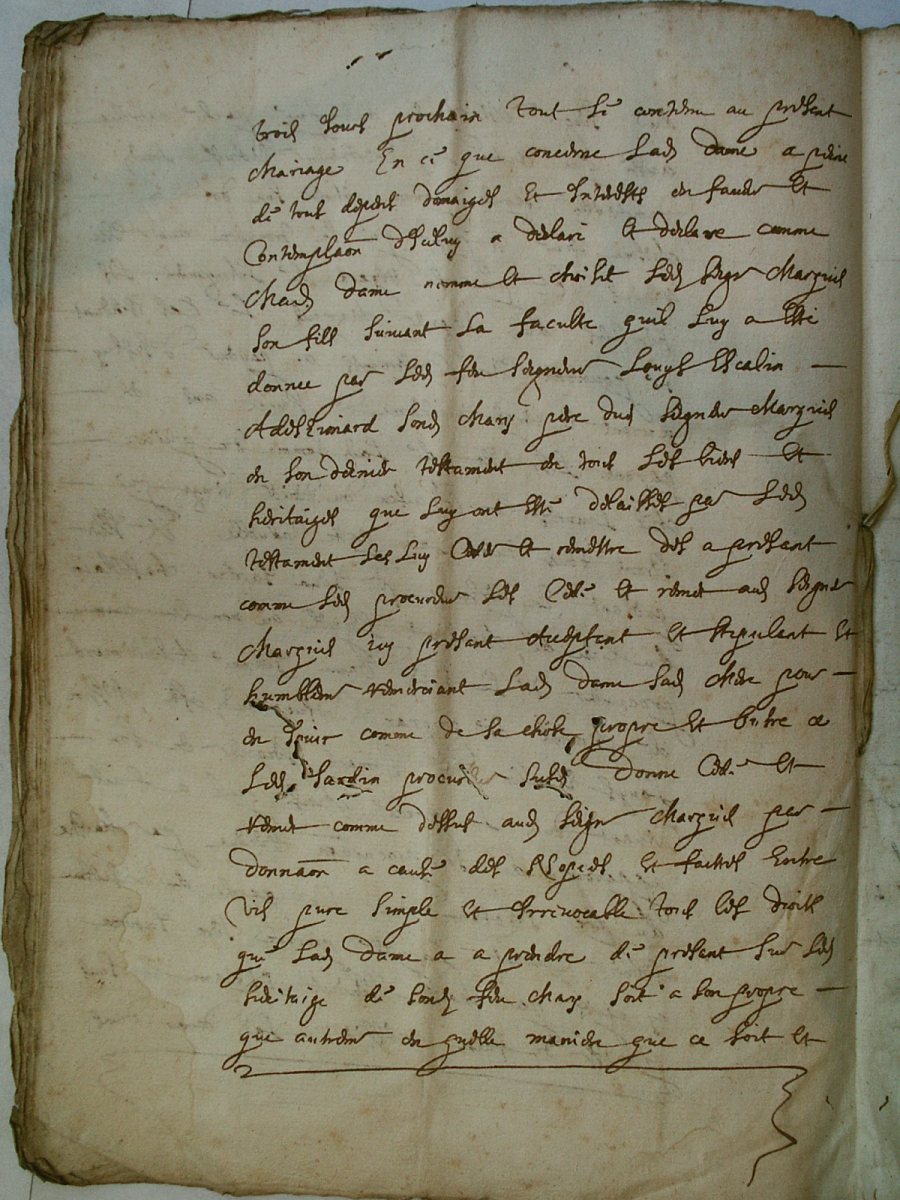 trois jours prochain tout le contenu au present
Mariage En ce que concerne lad dame a peine
de tous despens domaiges Et Interestz en faveur Et
Contemplaon d'Icelluy a declare Et declare comme
lad dame nomme Et choisit led Seigr Marquis
son filz suivant la faculte quil luy a este
donnee par led feu Seigneur Louys Escalin
Adheimard sond Mary pere dud Seigneur Marquis
en son dernier testament en tous les biens Et
heritaiges que luy ont este delaisses par led
testament les luy Cede Et remettre des a present
comme led procureur les Cede Et remet aud Seigneur
Marquis Icy presant Acceptant Et stipulant Et
humblemt remerciant lad dame sad Mere pour
en Jouir comme de sa chose propre Et Outre ce
led Jardin procureur susd donne Cede Et
remet comme dessus aud Seigr Marquis par
donnaon a cause des Nopces Et faictes Entre
vifs pure simple Et Irrevocable tous les droits
que lad dame a a prendre de presant sur led
heritaige de sond feu Mary soit a son propre
que autremt en quelle maniere que ce soit Et